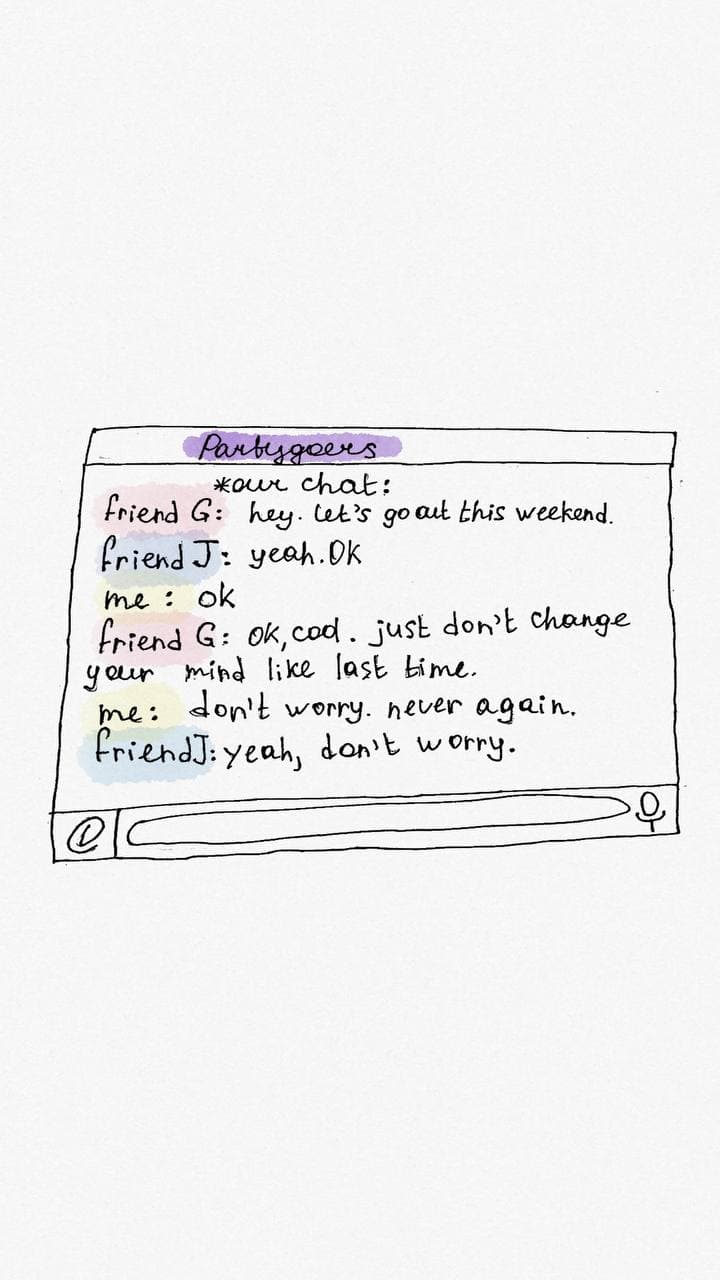 Partygoers
*our chat:
friend G: hey. let's go out this weekend.
friend J: yeah.Ok
me : ok
friend G: ok,cool. just don't change
your mind like last time.
me: don't worry. never again.
friendJ: yeah, don't worry.